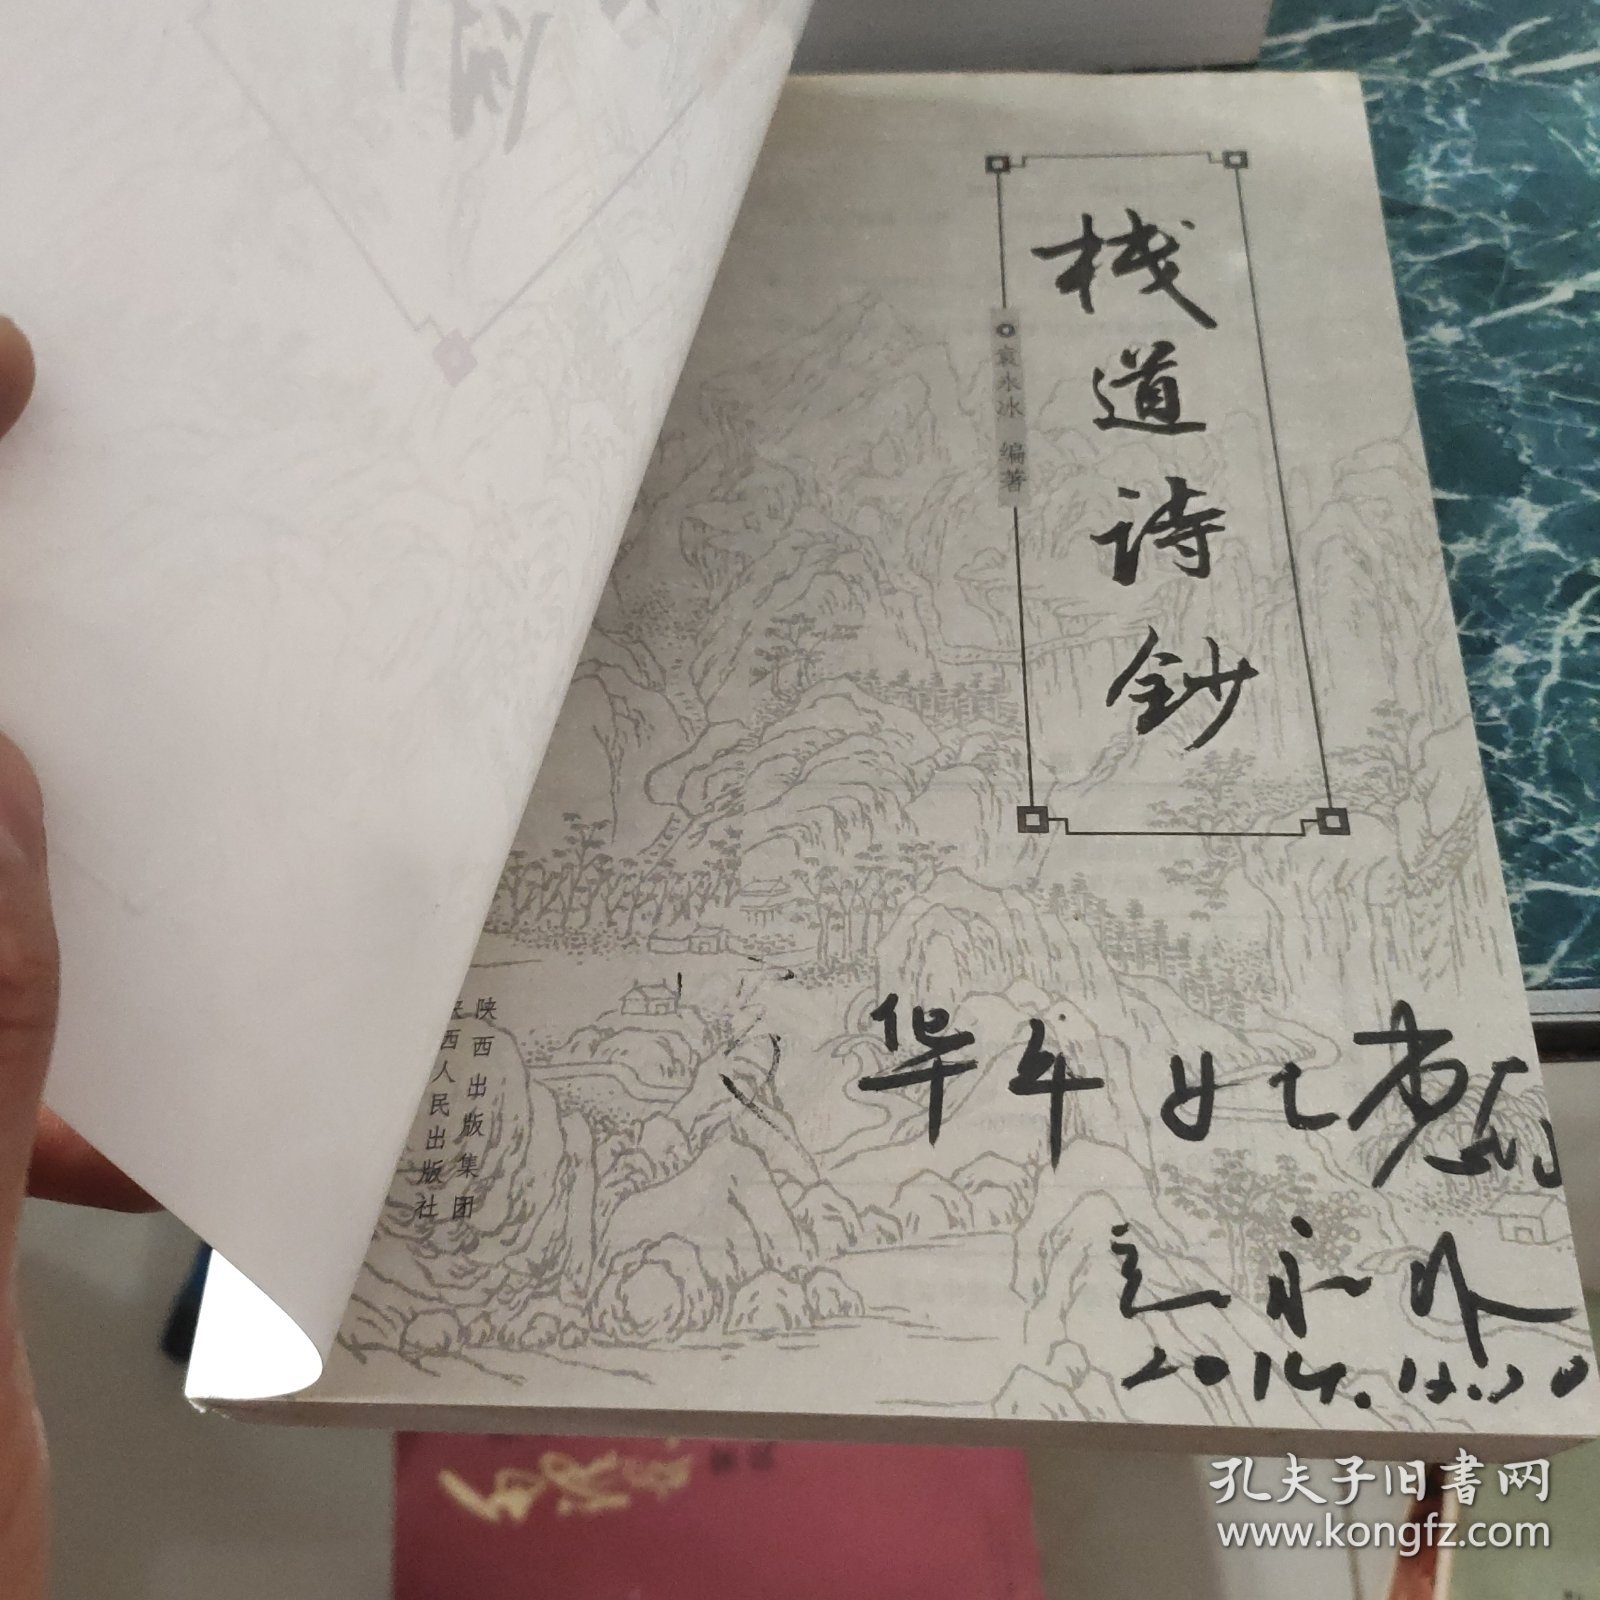 栈道诗鈔
袁永冰 编著
华年
袁永冰
2014.12.20
陕西出版集团
陕西人民出版社
孔夫子旧书网
www.kongfz.com